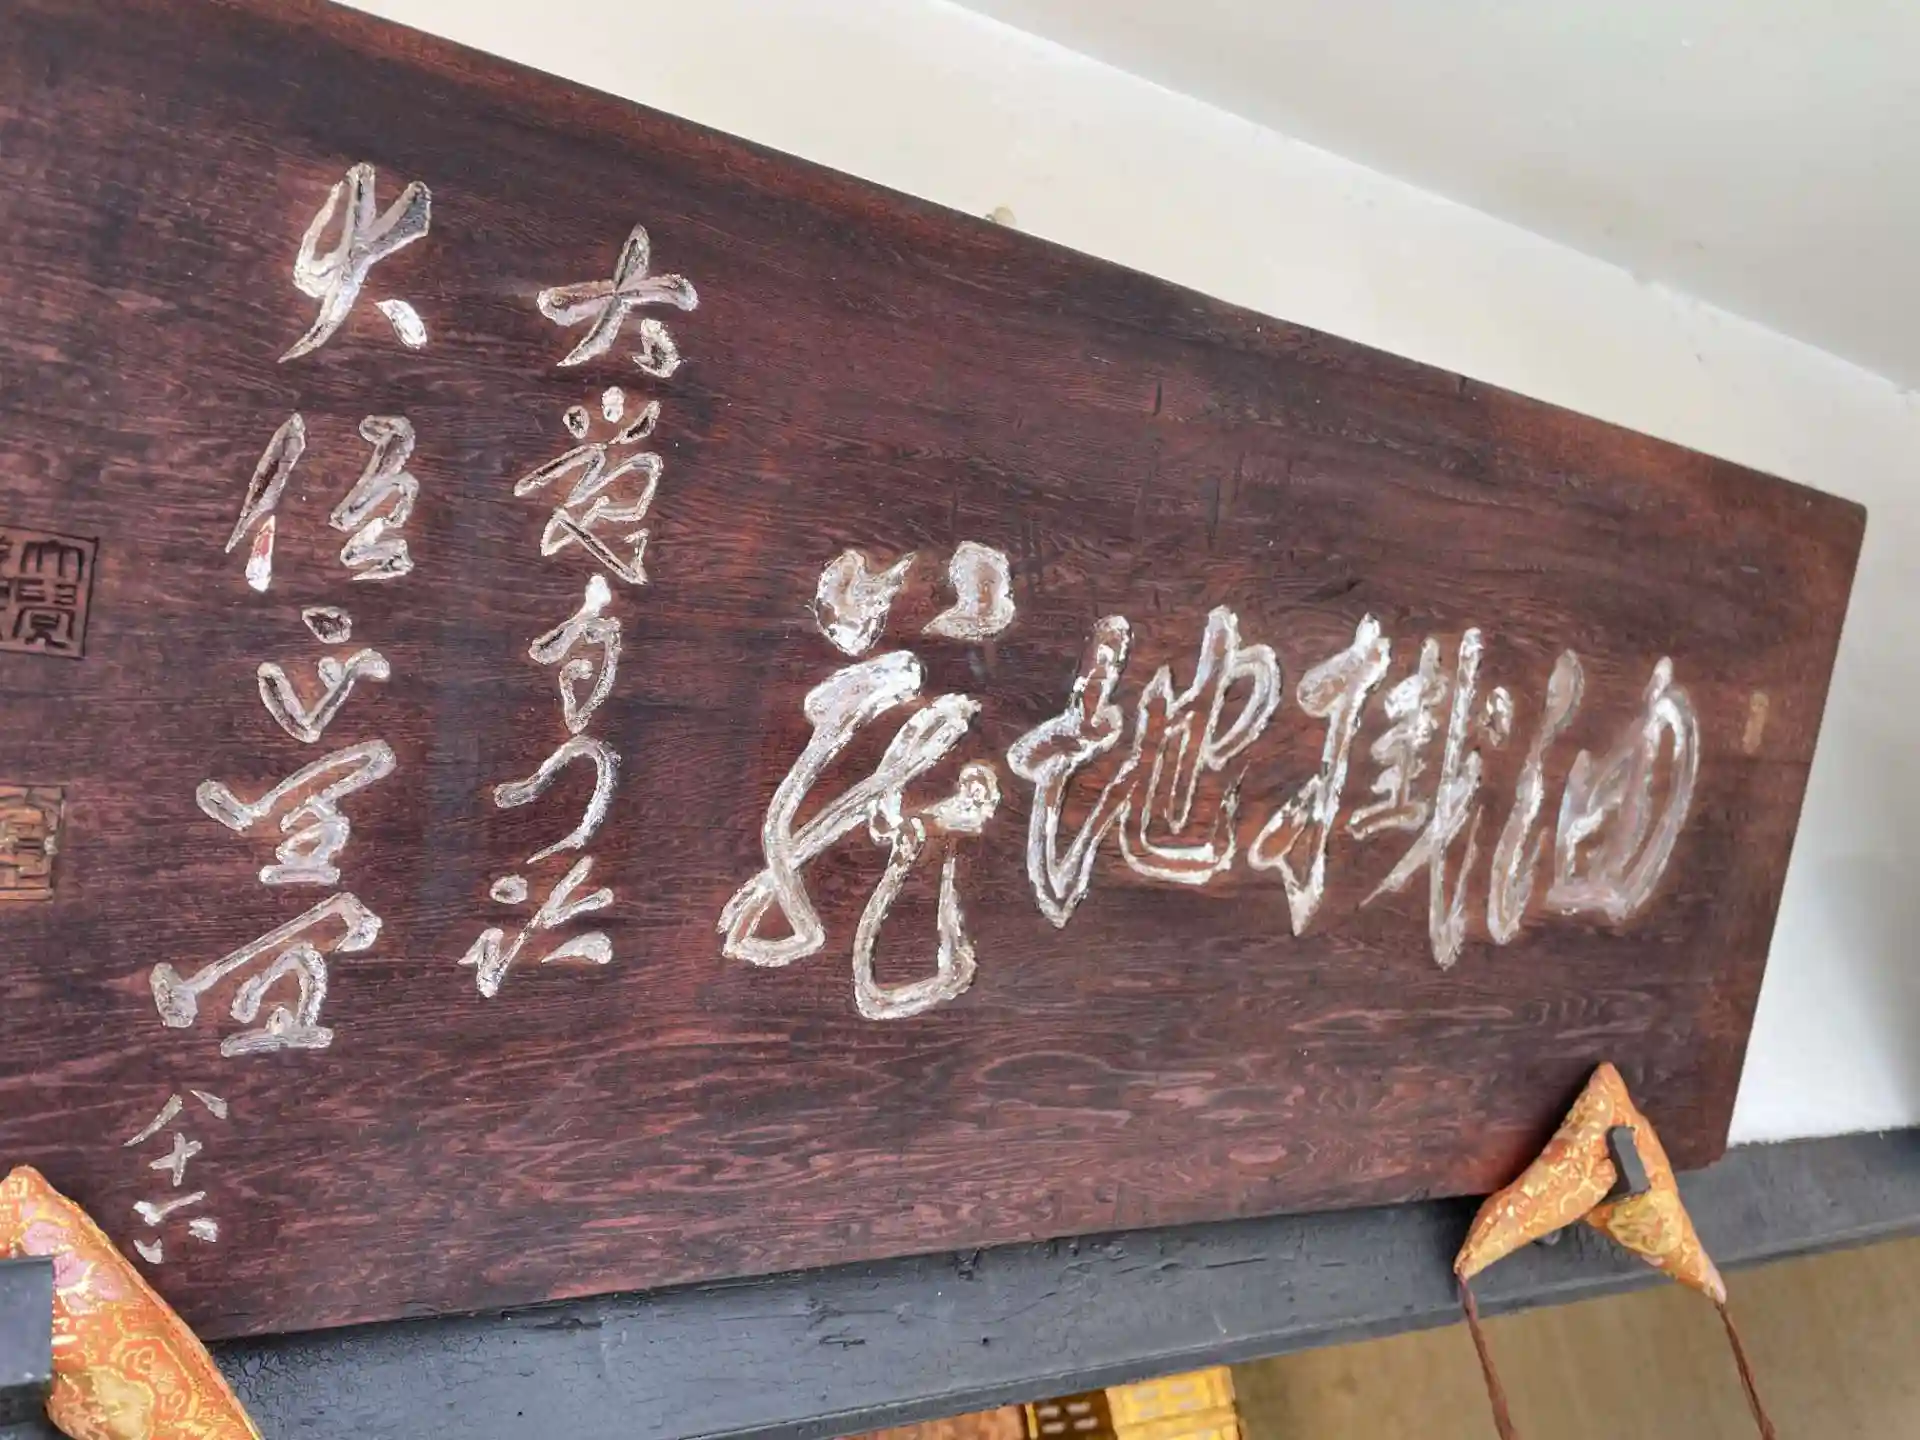 油掛地蔵
大覚寺門跡
大僧正全宜 八十六